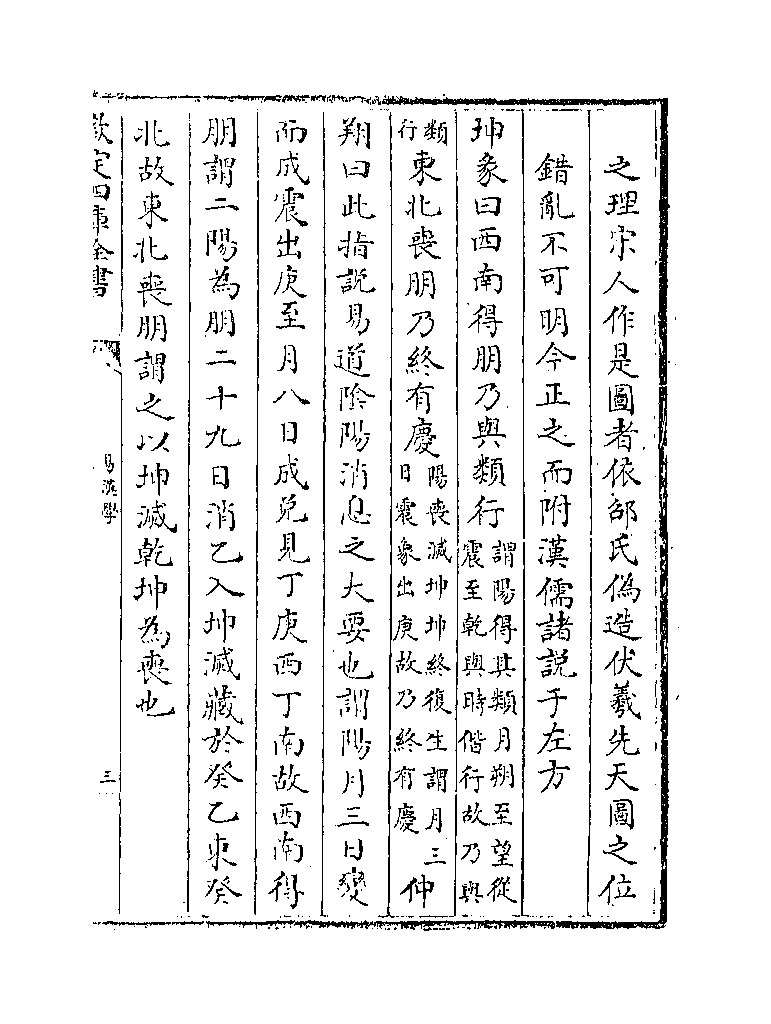 之理宋人作是圖者依邵氏偽造伏羲先天圖之位
錯亂不可明今正之而附漢儒諸説于左方
坤彖曰西南得朋乃與類行謂陽得其類月朔至望從震至乾與時偕行故乃與
類行東北喪朋乃終有慶陽喪滅坤坤終復生謂月三日震象出庚故乃終有慶仲
翔曰此指説易道隂陽消息之大要也謂陽月三日變
而成震出庚至月八日成兌見丁庚西丁南故西南得
朋謂二陽為朋二十九日消乙入坤滅藏於癸乙東癸
北故東北喪朋謂之以坤滅乾坤為喪也
欽定四庫全書
易漢學
三